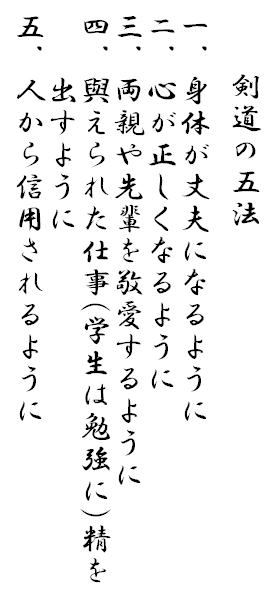 剣道の五法
一、身体が丈夫になるように
二、心が正しくなるように
三、両親や先輩を敬愛するように
四、與えられた仕事(学生は勉強に)精を
出すように
五、人から信用されるように